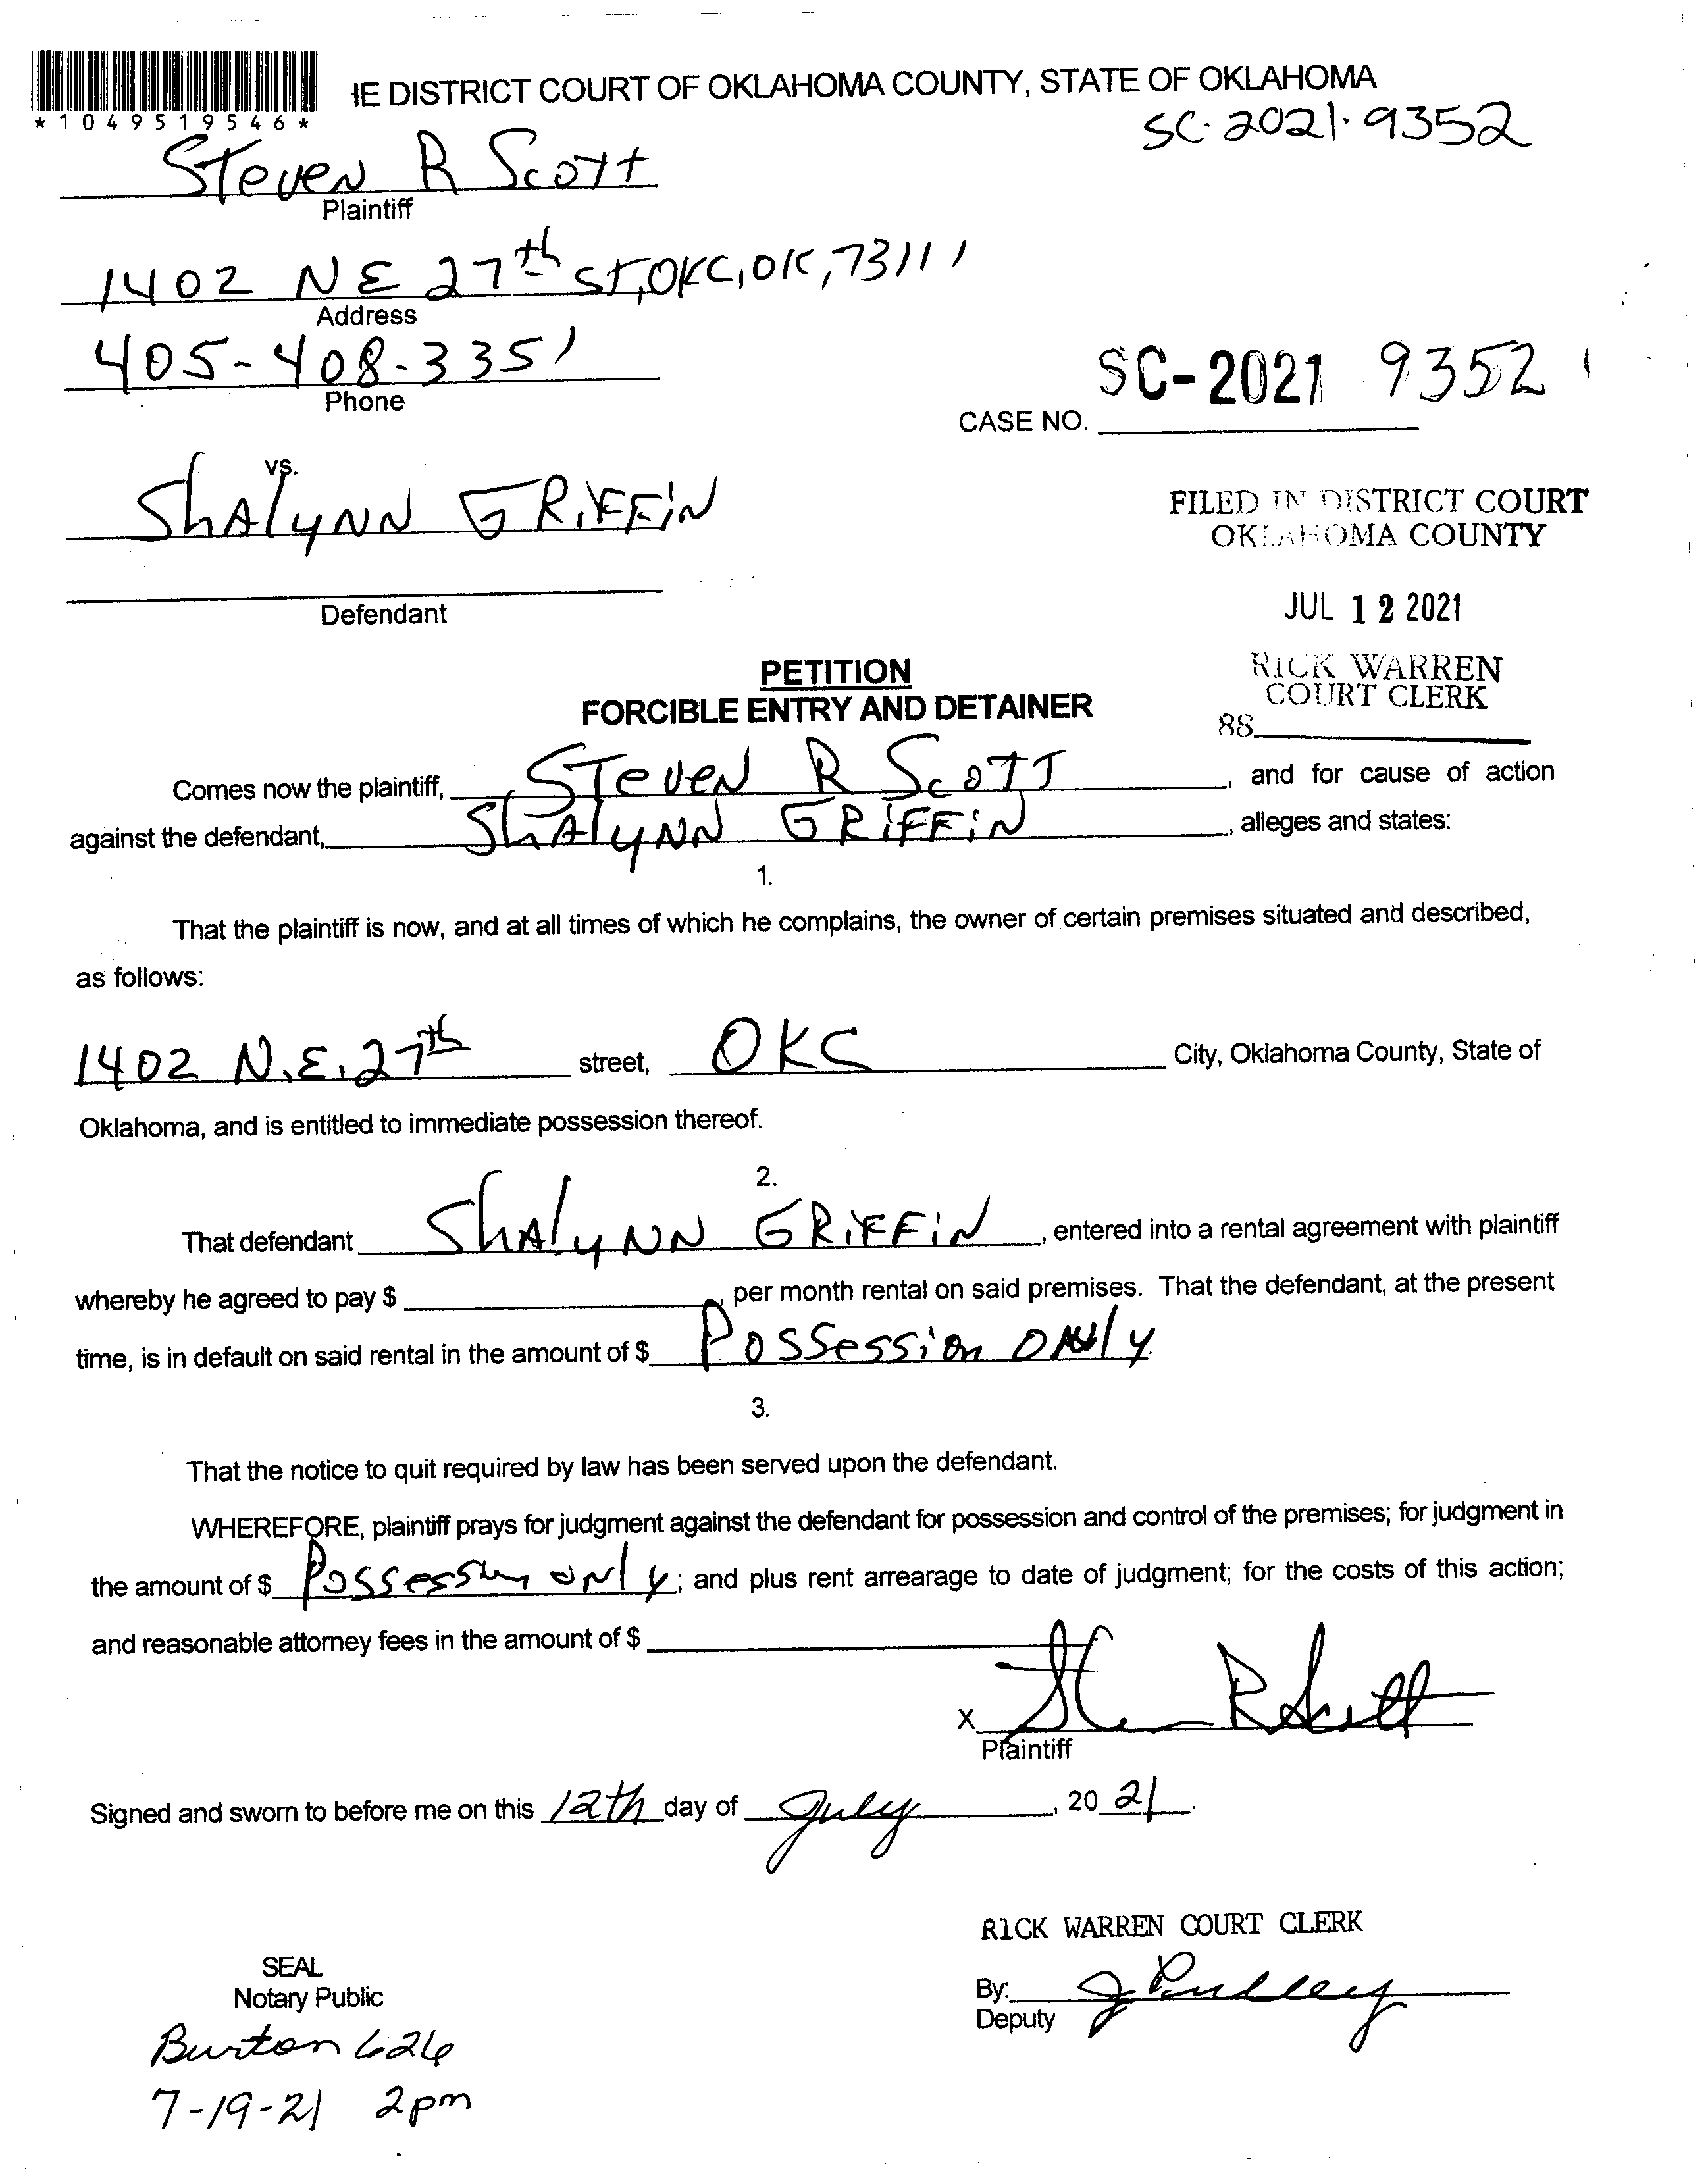 *1049519546*
IE DISTRICT COURT OF OKLAHOMA COUNTY, STATE OF OKLAHOMA
SC-2021-9352
Steven R Scott
Plaintiff
1402 NE 27th ST, OKC, OK, 73111
Address
405-408-3351
Phone
SC-2021 9352
CASE NO.
vs.
Shalynn GRiFFiN
FILED IN DISTRICT COURT
OKLAHOMA COUNTY
Defendant
JUL 12 2021
PETITION
RICK WARREN
COURT CLERK
FORCIBLE ENTRY AND DETAINER
88
Comes now the plaintiff, Steven R Scott, and for cause of action
against the defendant, Shalynn GRiFFiN, alleges and states:
1.
That the plaintiff is now, and at all times of which he complains, the owner of certain premises situated and described,
as follows:
1402 N.E. 27th street, OKC City, Oklahoma County, State of
Oklahoma, and is entitled to immediate possession thereof.
2.
That defendant Shalynn GRiFFiN, entered into a rental agreement with plaintiff
whereby he agreed to pay $ , per month rental on said premises. That the defendant, at the present
time, is in default on said rental in the amount of $ Possession ONly
3.
That the notice to quit required by law has been served upon the defendant.
WHEREFORE, plaintiff prays for judgment against the defendant for possession and control of the premises; for judgment in
the amount of $ Possession only; and plus rent arrearage to date of judgment; for the costs of this action;
and reasonable attorney fees in the amount of $
X Steven R Scott
Plaintiff
Signed and sworn to before me on this 12th day of July, 2021.
RICK WARREN COURT CLERK
SEAL
Notary Public
By: J Pulley
Deputy
Burton 626
7-19-21 2pm